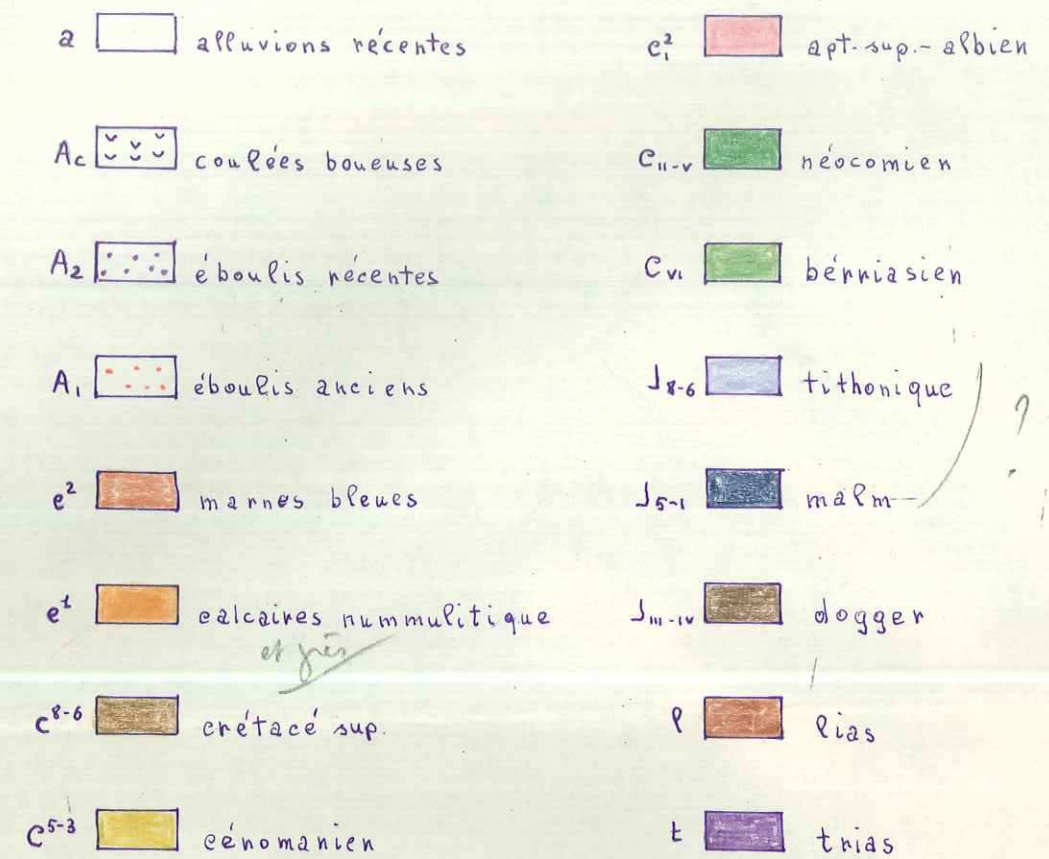 a alluvions récentes
Ac coulées boueuses
A2 éboulis récentes
A1 éboulis anciens
e² marnes bleues
e¹ calcaires nummulitique
et grès
c⁸⁻⁶ crétacé sup.
C⁵⁻³ cénomanien
c²₁ apt. sup. - albien
CII-V néocomien
CVI bérriasien
J8-6 tithonique
?
J5-1 malm
JIII-IV dogger
l lias
t trias